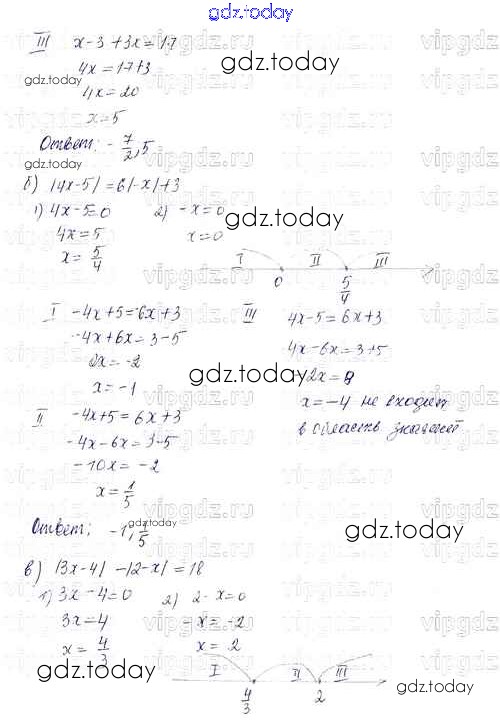 gdz.today
III x-3+3x=17
4x=17+3
4x=20
x=5
Ответ: -7/2, 5
б) |4x-5|=6|-x|+3
1) 4x-5=0 2) -x=0
4x=5 x=0
x=5/4
I II III
0 5/4
I -4x+5=-6x+3
-4x+6x=3-5
2x=-2
x=-1
II -4x+5=6x+3
-4x-6x=3-5
-10x=-2
x=1/5
III 4x-5=6x+3
4x-6x=3+5
-2x=8
x=-4 не входит
в область значений
Ответ: -1, 1/5
в) |3x-4|-|2-x|=18
1) 3x-4=0 2) 2-x=0
3x=4 -x=-2
x=4/3 x=2
I II III
4/3 2
gdz.today
gdz.today
gdz.today
gdz.today
gdz.today
gdz.today
gdz.today
gdz.today
gdz.today
vipgdz.ru